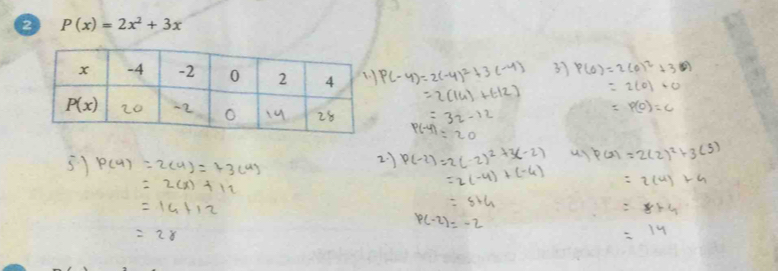 2 P(x) = 2x² + 3x
x -4 -2 0 2 4
P(x) 20 -2 0 14 28
1.) P(-4)=2(-4)²+3(-4)
=2(16)+(-12)
= 32-12
P(-4)= 20
3) P(0)=2(0)²+3
= 2(0)+0
= P(0)=0
5.) P(4) =2(4)=+3(4)
= +12
= 16+12
= 28
2.) P(-2)=2(-2)²+3(-2)
=2(-4)+(-6)
P(-2)= -2
=2(2)²+3
= 14